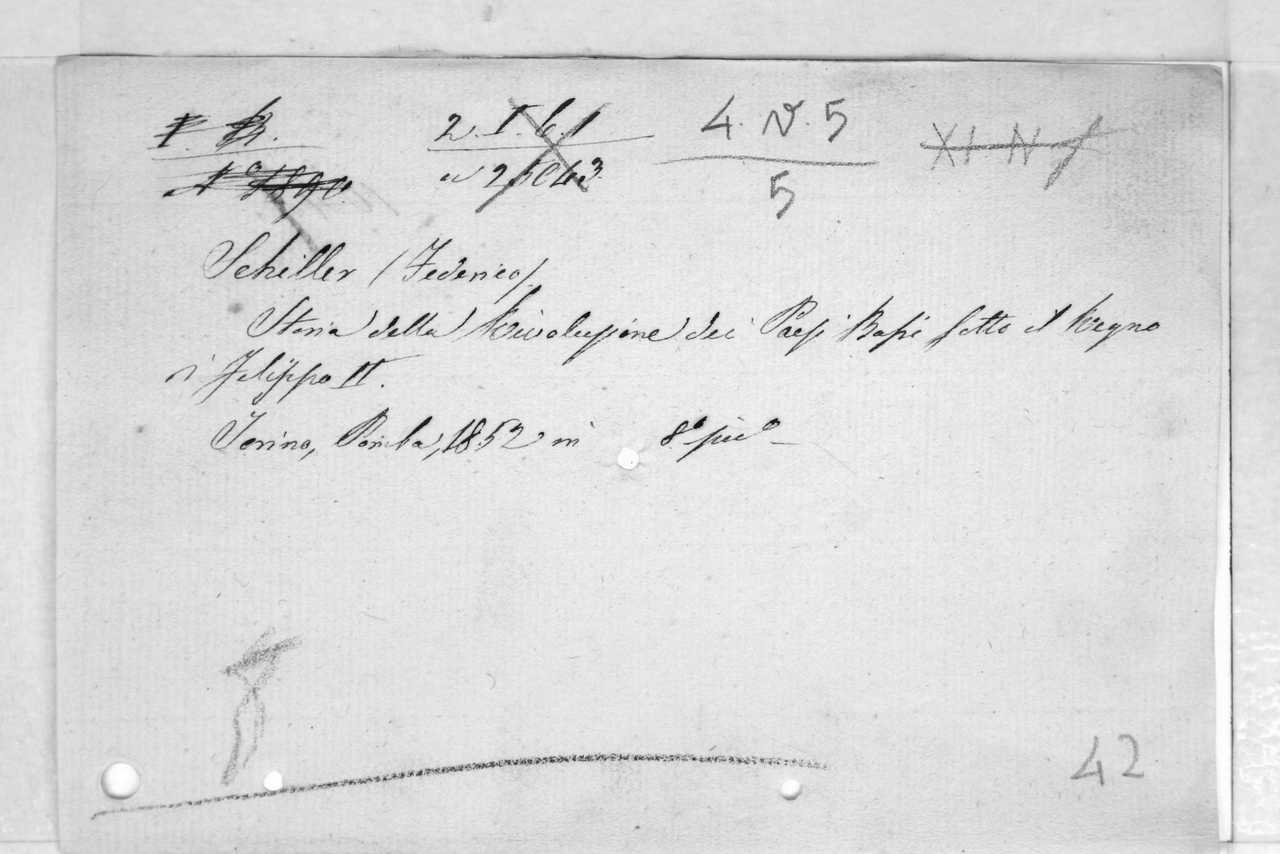 2. I. b. 1
4. N. 5
XI N
5
Schiller (Federico).
Storia della Rivoluzione dei Paesi Bassi sotto il Regno
di Filippo II.
Torino, Pomba, 1852 in 8º picº
42